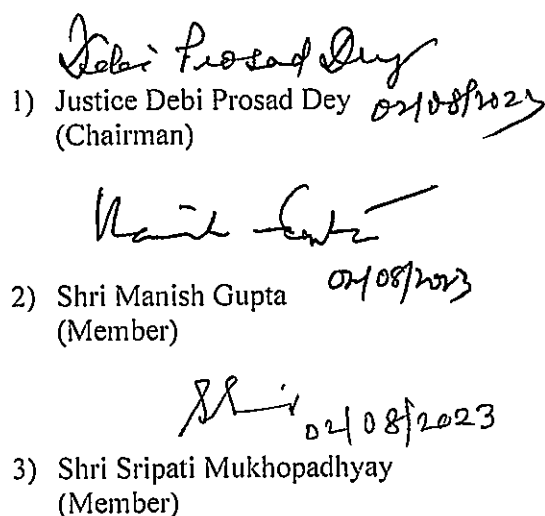 Debi Prosad Dey
1) Justice Debi Prosad Dey 02/08/2023
(Chairman)
Manish Gupta
2) Shri Manish Gupta 02/08/2023
(Member)
02/08/2023
3) Shri Sripati Mukhopadhyay
(Member)